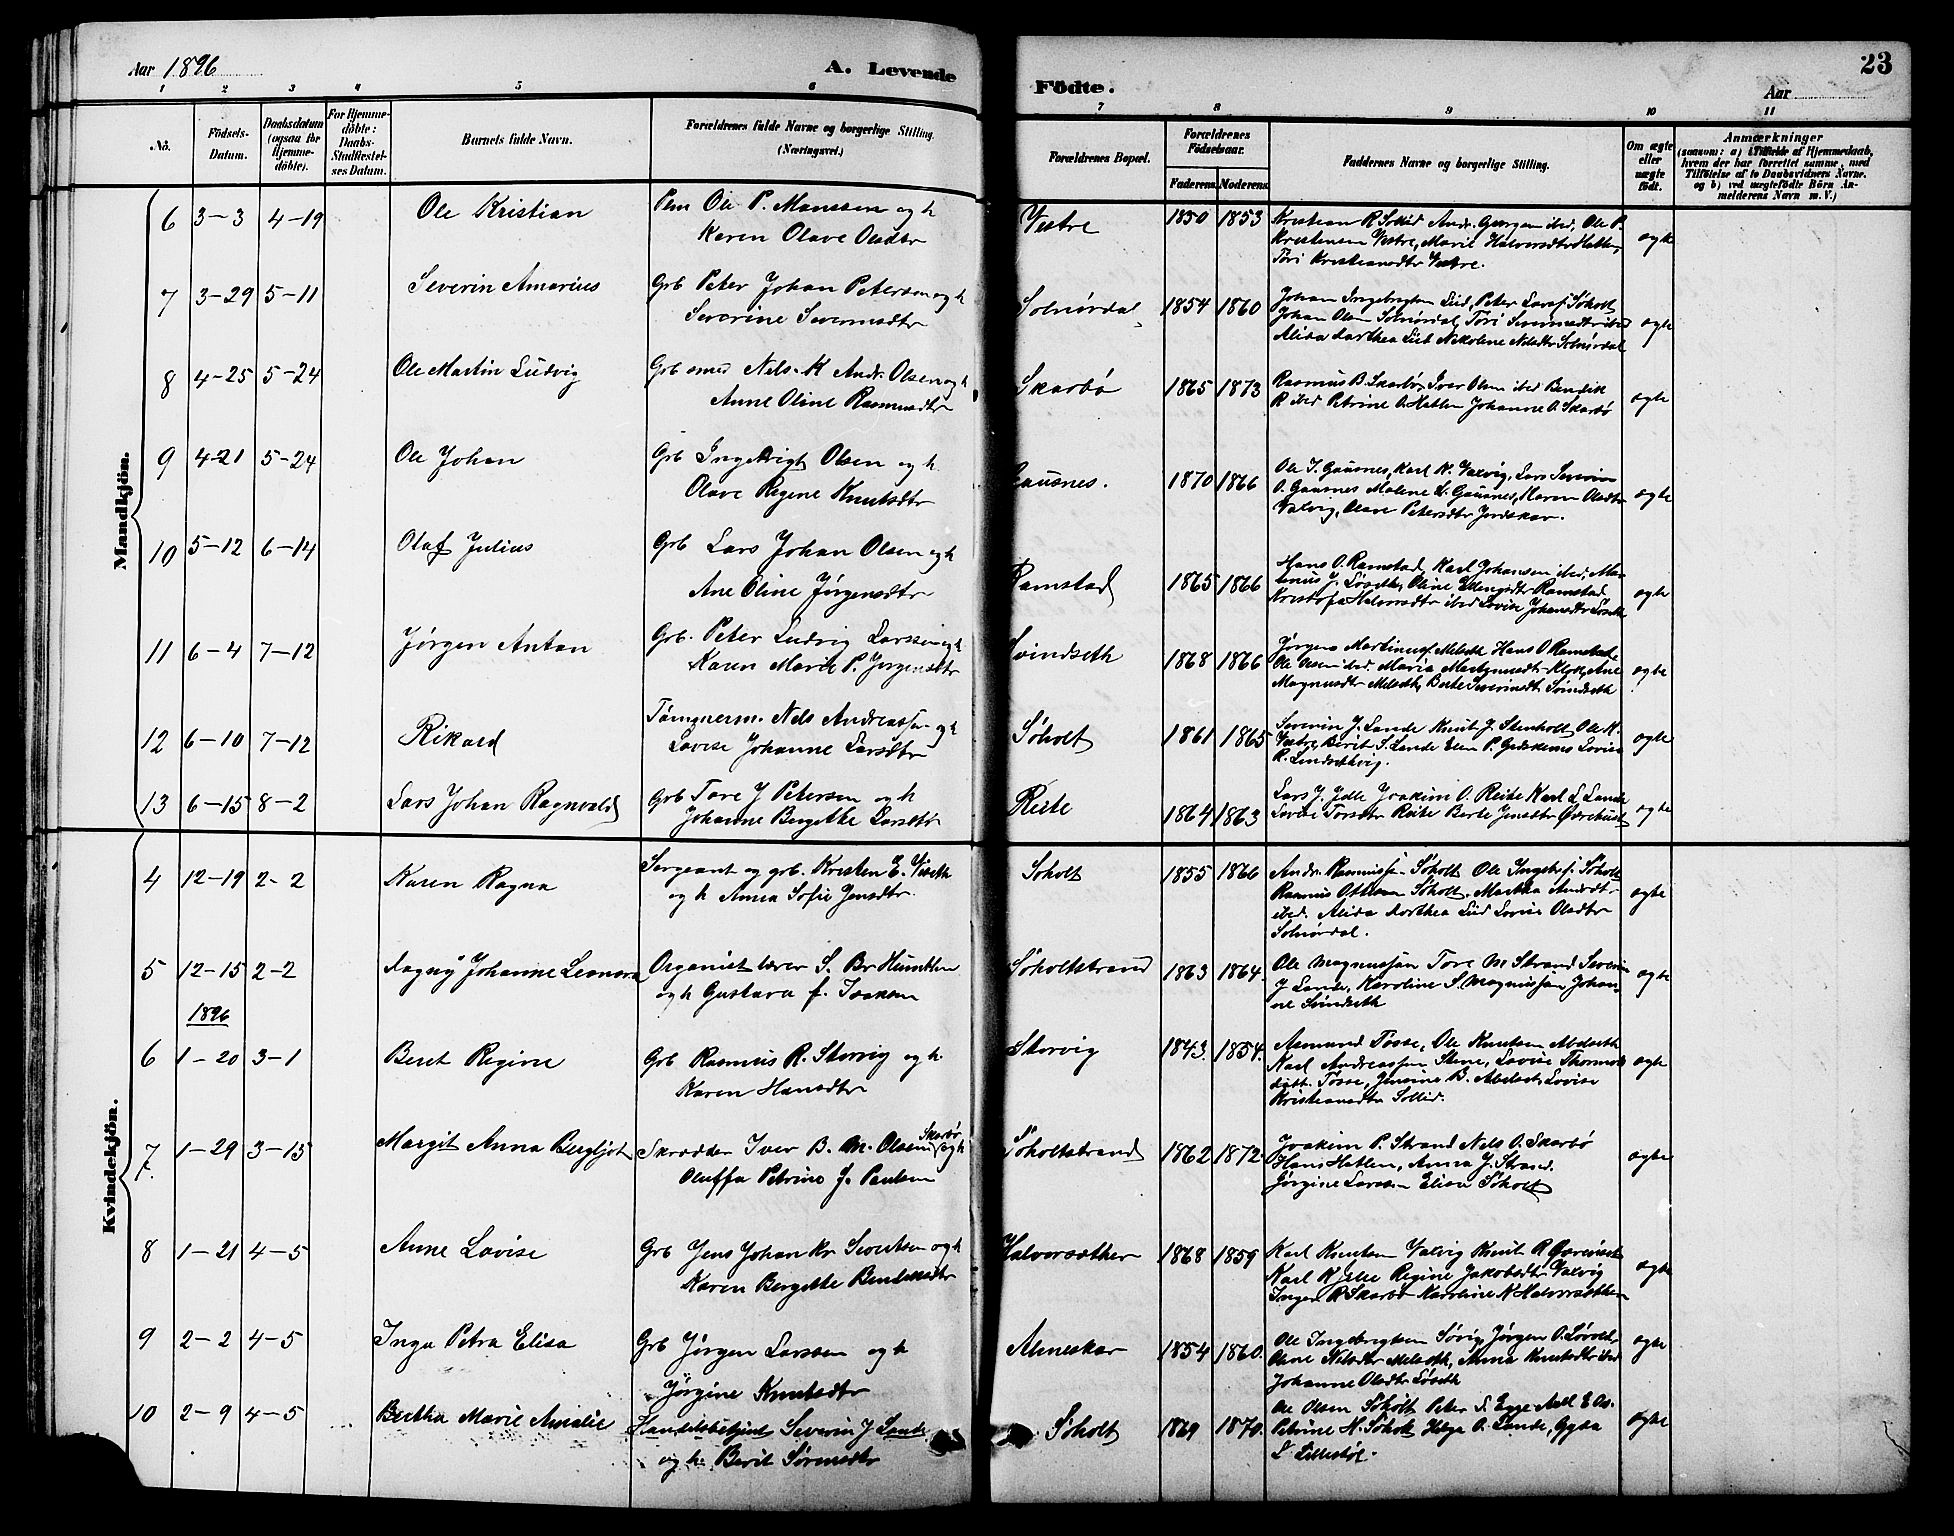 Aar 1896
A. Levende
Födte.
Aar
23
1 2 3 4 5 6 7 8 9 10 11
No.
Födsels-
Datum.
Daabsdatum
(ogsaa for
Hjemme-
döbte).
For Hjemme-
döbte:
Daabs-
Stadfæstel-
ses Datum.
Barnets fulde Navn.
Forældrenes fulde Navne og borgerlige Stilling.
(Næringsvei.)
Forældrenes Bopæl.
Forældrenes
Födselsaar.
Faderens. Moderens.
Faddernes Navne og borgerlige Stilling.
Om ægte
eller
uægte
födt.
Anmærkninger
(saasom: a) i Tilfælde af Hjemmedaab,
hvem der har forrettet samme, med
Tilföielse af to Daabsvidners Navne.
og b) ved uægtefödte Börn An-
melderens Navn m. V.)
Mandkjön.
6 3-3 4-19 Ole Kristian
Ole P. Monssen og h
Karen Olave Olsdtr
Vestre 1850 1853
Kristensen Vestre, Marie Halvorsdtr Hatlen,
Tori Kristiansdtr Vestre.
ægte
7 3-29 5-11 Severin Amarius
Grb Peter Johan Petersen og h
Severine Severinsdtr
Solnørdal 1854 1860
Johan Ingebrigtsen Lid, Peter Larsf Søholt
Johan Olsen Solnørdal, Tori Severinsdtr ibd
Alida Dorthea Lid Nikoline Nilsdtr Solnørdal
ægte
8 4-25 5-24 Ole Martin Ludvig
Grb smed Nels K Andr. Olsen og h
Anne Oline Rasmusdtr
Skarbø 1865 1873
Rasmus B. Skarbø, Iver Olsen ibed Bendik
R ibed Petrine O. Hatlen Johanne O. Skarbø
ægte
9 4-21 5-24 Ole Johan
Grb Ingebrigt Olsen og h
Olave Regine Knutsdtr
Gausnes. 1870 1866
Ole I. Gausnes, Karl N. Valvig, Lars Severin
O. Gausnes Malene L. Gausnes, Maren Olsdtr
Valvig, Olave Petersdtr
ægte
10 5-12 6-14 Olaf Julius
Grb Lars Johan Olsen og h
Ane Oline Jørgensdtr
Ramstad 1865 1866
Hans O. Ramstad, Karl Johansen ibed, Mar-
tinus J. Løseth, Oline Ellingsdtr Ramstad
Kristofa Halvorsdtr ibed Lovise Johansdtr Løseth
ægte
11 6-4 7-12 Jørgen Anton
Grb. Peter Ludvig Larssen og h
Karen Marie P. Jørgensdtr
Svindseth 1868 1866
Jørgens Martinusf Melseth Hans O Ramstad
Ole Olsen ibed. Maria Martinusdtr Ane
Magnusdtr Melseth, Berte Severinsdtr Svindseth
ægte
12 6-10 7-12 Rikard
Tømmerm. Nels Andreassen og h
Lovise Johanne Larsdtr
Søholt 1861 1865
Severin J. Lande Knut J. Stenholt Ole K.
Vestre, Berit S. Lande Elen P. Lovise
R. Lindsethvig.
ægte
13 6-15 8-2 Lars Johan Ragnvald
Grb Tore J Petersen og h
Johanne Bergithe Larsdtr
Reite 1864 1863
Lars J. Joakim O. Reite Karl L Lande
Lovise Torsdtr Reite Berte Jensdtr
ægte
Kvindekjön.
4 12-19 2-2 Karen Ragna
Sergeant og grb. Kristen E. Viseth
og h Anna Sofie Jensdtr.
Søholt 1855 1866
Andr. Rasmusf Søholt Ole Ingebr.f. Søholt
Rasmus Ottesen Søholt. Martha Andrsdtr
ibed. Alida Dorthea Lid Lovise Olsdtr
Solnørdal.
ægte
5 12-15 2-2 Dagny Johanne Leonora
Organist lærer S. Br Humblen
og h Gustava f. Isaksen
Søholtstrand 1863 1864.
Ole Magnussen Tore M Strand Severin
J Lande, Karoline S. Magnussen Johan-
ne Svindseth
ægte
1896
6 1-20 3-1 Beret Regine
Grb Rasmus R. Storvig og h.
Karen Hansdtr
Storvig 1843. 1854.
Asmund Tøsse, Ole Knutsen Abelseth
Karl Andreassen Stene, Lovise Thormods
datt. Tøsse, Jensine B. Abelset, Lovise
Kristiansdtr Sollid.
ægte
7 1-29 3-15 Margit Anna Bergljot
Skrædder Iver B. M. Olsen Skarbø og h
Oluffa Petrine f. Paulsen
Søholtstrand 1862 1872.
Joakim P. Strand Nels O. Skarbø
Hans Hatlen, Anna J. Strand.
Jørgine Larssen Elisa Søholt
ægte
8 1-21 4-5 Anne Lovise
Grb Jens Johan Kr Sivertsen og h
Karen Bergithe Bendiksdtr
Halvorsæther 1868 1859
Karl Knutsen Valvig Knut R
Karl K. Regine Jakobsdtr Valvig
Inger R Skarbø Karoline N Halvorsæther
ægte
9 2-2 4-5 Inga Petra Elisa
Grb Jørgen Larssen og h
Jørgine Knutsdtr
Amneskar 1854 1860.
Ole Ingebrigtsen Søvig Jørgen O. Løseth
Oline Nilsdtr Melseth, Anna Knutsdtr ibid
Johanne Olsdtr Løseth
ægte
10 2-9 4-5 Bertha Marie Amalie
Handelsbetjent Severin J Lande
og h. Berit Sørensdtr
Søholt 1869 1870.
Ole Olsen Søholt Peter S. Egge
Petrine H. Søholt Helga O. Lande, Gyda
L Lillestøl.
ægte